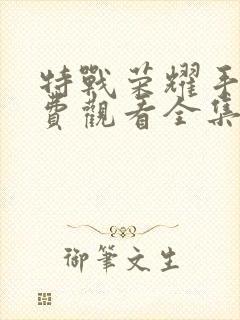 特戰荣耀手
費觀看全集
御筆文生